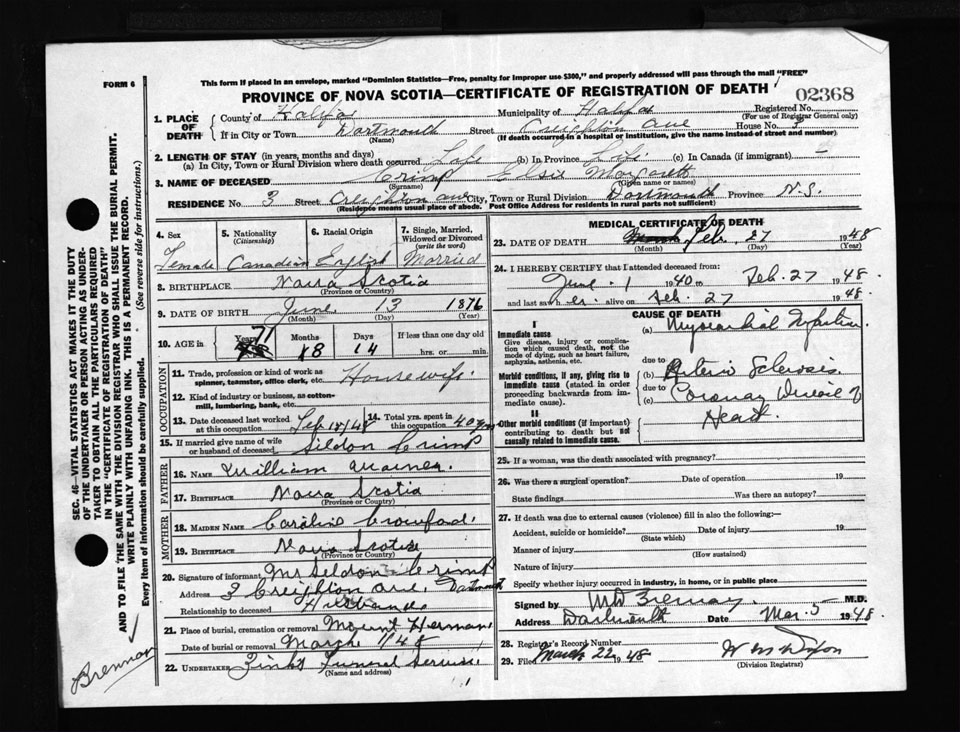 FORM 6
This form if placed in an envelope, marked "Dominion Statistics—Free, penalty for improper use $300," and properly addressed will pass through the mail "FREE"
PROVINCE OF NOVA SCOTIA—CERTIFICATE OF REGISTRATION OF DEATH
02368
1. PLACE OF DEATH
County of Halifax Municipality of Halifax Registered No.
(For use of Registrar General only)
If in City or Town Dartmouth Street Creighton Ave House No. 3
(Name) (If death occurred in a hospital or institution, give the name instead of street and number)
2. LENGTH OF STAY (in years, months and days)
(a) In City, Town or Rural Division where death occurred Life (b) In Province Life (c) In Canada (if immigrant) –
3. NAME OF DECEASED Crimp Elsie Margaret
(Surname) (Given name or names)
RESIDENCE No. 3 Street Creighton ave City, Town or Rural Division Dartmouth Province N.S.
(Residence means usual place of abode. Post Office Address for residents in rural parts not sufficient)
4. Sex Female
5. Nationality (Citizenship) Canadian
6. Racial Origin English
7. Single, Married, Widowed or Divorced (write the word) Married
8. BIRTHPLACE Nova Scotia
(Province or Country)
9. DATE OF BIRTH June 13 1876
(Month) (Day) (Year)
10. AGE in Years 71 Months 8 Days 14 If less than one day old hrs. or min.
OCCUPATION
11. Trade, profession or kind of work as spinner, teamster, office clerk, etc. Housewife
12. Kind of industry or business, as cotton-mill, lumbering, bank, etc.
13. Date deceased last worked at this occupation Feb 18/48
14. Total yrs. spent in this occupation 40 yrs
15. If married give name of wife or husband of deceased Seldon Crimp
FATHER
16. NAME William
17. BIRTHPLACE Nova Scotia
(Province or Country)
MOTHER
18. MAIDEN NAME Caroline Crawford
19. BIRTHPLACE Nova Scotia
(Province or Country)
20. Signature of informant Mr Seldon Crimp
Address 3 Creighton ave, Dartmouth
Relationship to deceased Husband
21. Place of burial, cremation or removal Mount Herman
Date of burial or removal March 1/48
22. UNDERTAKER Zinks Funeral Service
(Name and address)
MEDICAL CERTIFICATE OF DEATH
23. DATE OF DEATH March Feb. 27 1948
(Month) (Day) (Year)
24. I HEREBY CERTIFY that I attended deceased from
June 1 1940 to Feb. 27 1948.
and last saw her alive on Feb. 27 1948.
CAUSE OF DEATH
I
Immediate cause
Give disease, injury or complication which caused death, not the mode of dying, such as heart failure, asphyxia, asthenia, etc.
(a) Myocardial
due to
Morbid conditions, if any, giving rise to immediate cause (stated in order proceeding backwards from immediate cause).
(b) Arterio Sclerosis
due to
(c) Coronary Disease of Heart.
II
Other morbid conditions (if important) contributing to death but not causally related to immediate cause.
25. If a woman, was the death associated with pregnancy?
26. Was there a surgical operation? Date of operation 19
State findings Was there an autopsy?
27. If death was due to external causes (violence) fill in also the following:
Accident, suicide or homicide? Date of injury 19
(State which)
Manner of injury
(How sustained)
Nature of injury
Specify whether injury occurred in industry, in home, or in public place
Signed by M.D.
Address Dartmouth Date Mar. 5 1948
28. Registrar's Record Number
29. Filed March 22 1948
(Division Registrar)
SEC. 46—VITAL STATISTICS ACT MAKES IT THE DUTY OF THE UNDERTAKER OR PERSON ACTING AS UNDERTAKER TO OBTAIN ALL THE PARTICULARS REQUIRED IN THE "CERTIFICATE OF REGISTRATION OF DEATH" AND TO FILE THE SAME WITH THE DIVISION REGISTRAR WHO SHALL ISSUE THE BURIAL PERMIT.
WRITE PLAINLY WITH UNFADING INK. THIS IS A PERMANENT RECORD.
Every item of information should be carefully supplied. (See reverse side for instructions.)
Brennan